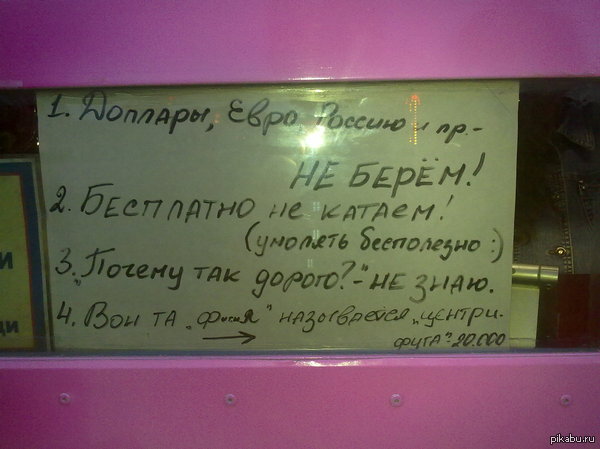 1. Доллары, Евро, Россию и пр.-
НЕ БЕРЁМ!
2. БЕСПЛАТНО НЕ КАТАЕМ!
(умолять бесполезно :)
3. „Почему так дорого?"- НЕ ЗНАЮ.
4. Вон та „фигня" называется „центри-
фуга"-20.000
И
ДИ
pikabu.ru